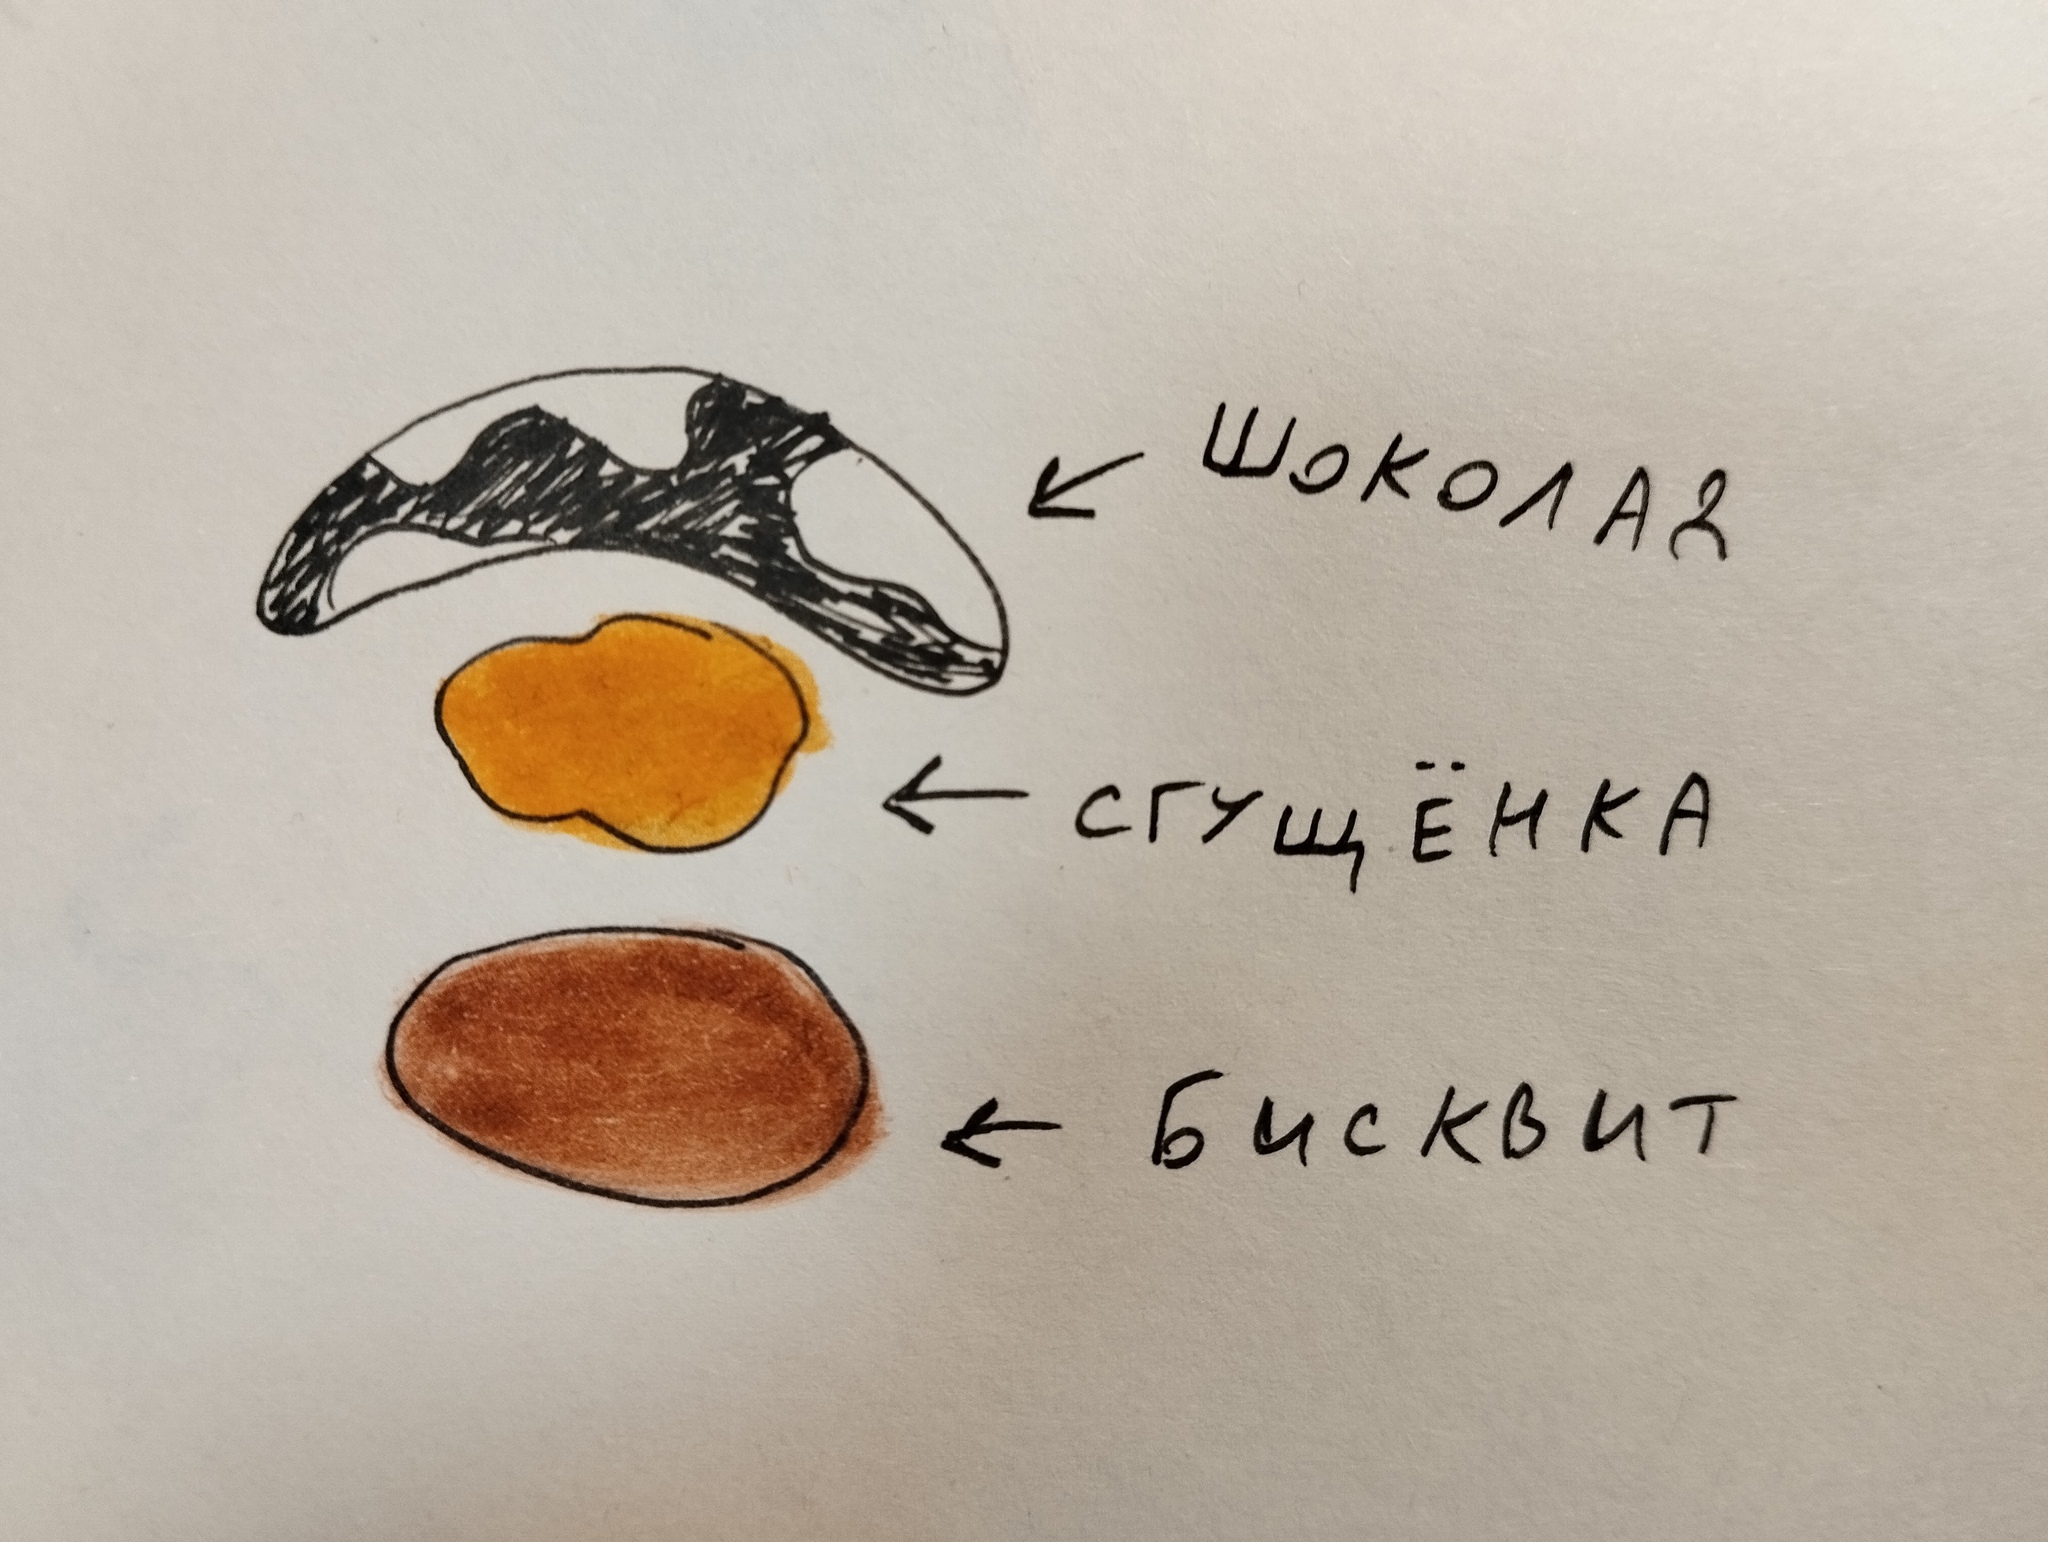 ШОКОЛАД
СГУЩЁНКА
БИСКВИТ